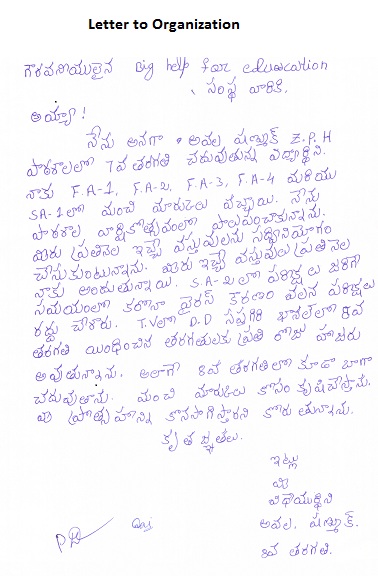 Letter to Organization
గౌరవనీయులైన Big help for education
సంస్థ వారికి,
అయ్యా!
నేను అనగా అవల షణ్ముక్ Z.P.H
పాఠశాలలో 7వ తరగతి చదువుతున్న విద్యార్థిని.
నాకు F.A-1, F.A-2, F.A-3, F.A-4 మరియు
SA-1లో మంచి మార్కులు వచ్చాయి. నేను
పాఠశాల వార్షికోత్సవంలో పాల్గొన్నాను.
మీరు ప్రతినెల ఇచ్చే వస్తువులను సద్వినియోగం
చేసుకుంటున్నాను. మీరు ఇచ్చే వస్తువులు ప్రతినెల
నాకు అందుతున్నాయి. S.A-2లో పరీక్షలు జరిగే
సమయంలో కరోనా వైరస్ కారణం వలన పరీక్షలు
రద్దు చేశారు. T.Vలో D.D సప్తగిరి ఛానల్‌లో 8వ
తరగతి తరగతులకు ప్రతి రోజు హాజరు
అవుతున్నాను. అలాగే 8వ తరగతిలో కూడా బాగా
చదువుతాను. మంచి మార్కులు కోసం కృషిచేస్తాను.
మీ ప్రోత్సాహాన్ని కొనసాగిస్తారని కోరుతున్నాను.
కృతజ్ఞతలు.
ఇట్లు
మీ
విధేయుడిని
అవల. షణ్ముక్.
8వ తరగతి.